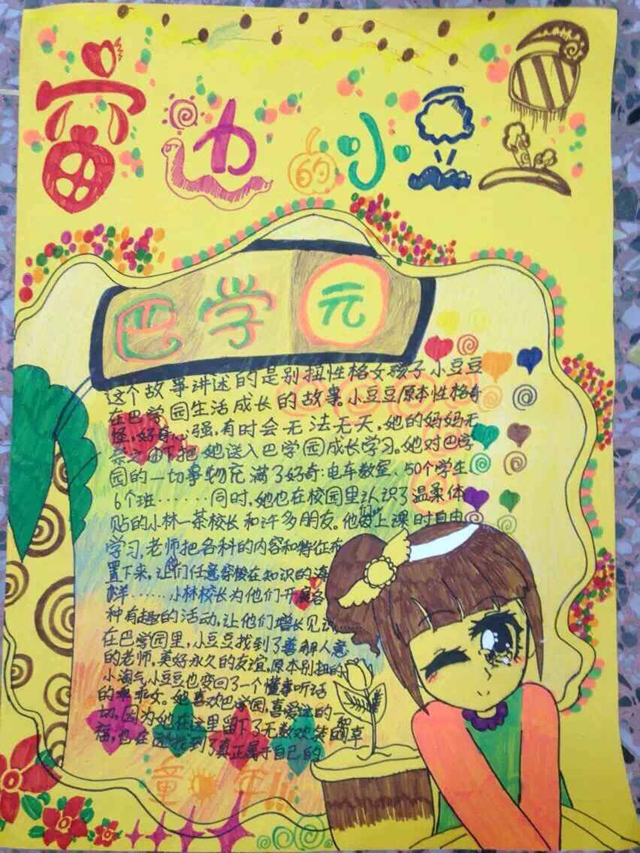 窗边的小豆豆
巴学元
这个故事讲述的是别扭性格女孩子小豆豆
在巴学园生活成长的故事。小豆豆原本性格奇
怪,好奇心强,有时会无法无天,她的妈妈无
奈之下把她送入巴学园成长学习。她对巴学
园的一切事物充满了好奇:电车教室、50个学生
6个班……同时,她也在校园里认识了温柔体
贴的小林一茶校长和许多朋友。他们上课时自由
学习,老师把各科的内容和特征布
置下来,让们任意穿梭在知识的海
洋……小林校长为他们开展各
种有趣的活动,让他们增长见识……
在巴学园里,小豆豆找到了善解人意
的老师,美好永久的友谊,原本别扭的
小淘气小豆豆也变回了一个懂事听话
的乖乖女。她喜欢巴学园,喜爱这的一
切,因为她在这里留下了无数欢笑和幸
福,也在这找到了真正属于自己的
童年!!